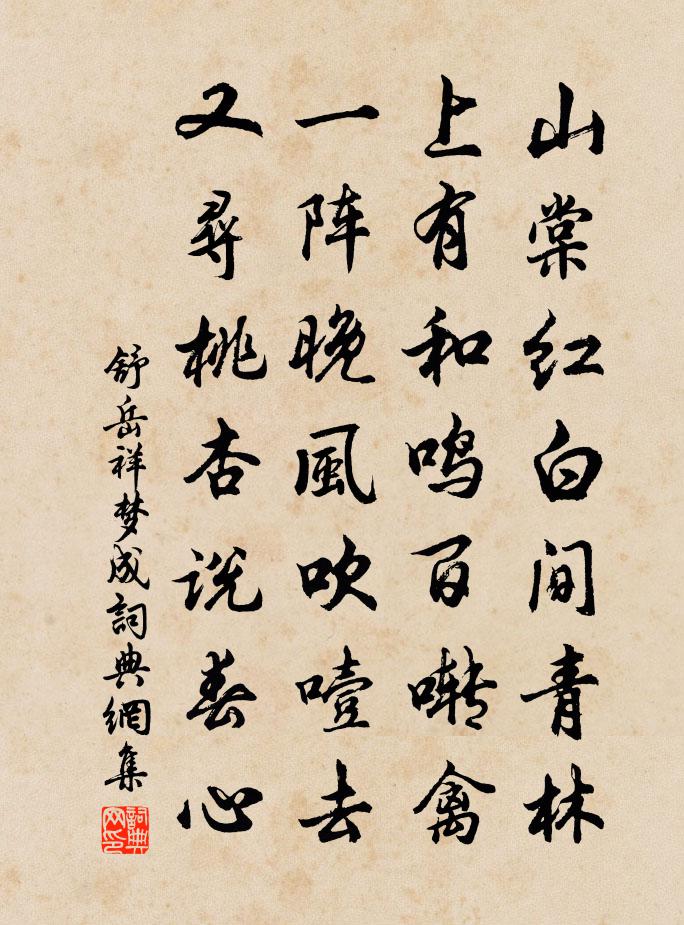 山棠红白间青林
上有和鸣百啭禽
一阵晚風吹噎去
又尋桃杏说春心
舒岳祥梦成詞典網集
詞典网印